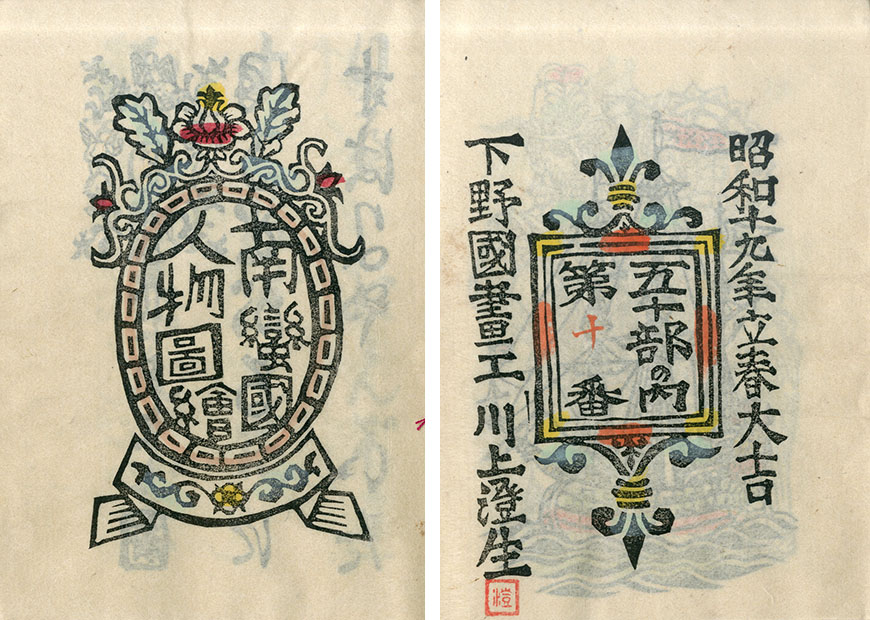 南蠻國
人物圖繪
昭和十九年立春大吉
五十部の内
第十番
下野國畫工 川上澄生
澄